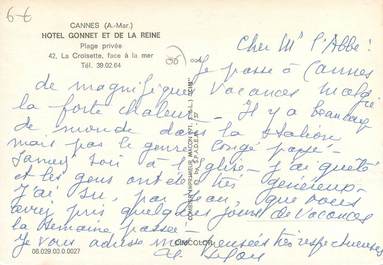 6-6
CANNES (A.-Mar.)
HOTEL GONNET ET DE LA REINE
Plage privée
42, La Croisette, face à la mer
Tél. 39.02.64
Cher Mr l'Abbé!
Je passe à Cannes
de magnifiques vacances malgré
la forte chaleur - Il y a beaucoup
de monde dans la station
mais pas le genre congé payé -
Samedi soir à l'église - j'ai quêté
et les gens ont été très généreux -
J'ai su, par Jean, que vous
avez pris quelques jours de vacances
la semaine passée -
Je vous adresse mes pensées très respectueuses
06.029.03 0.0027
CIMCOLOR